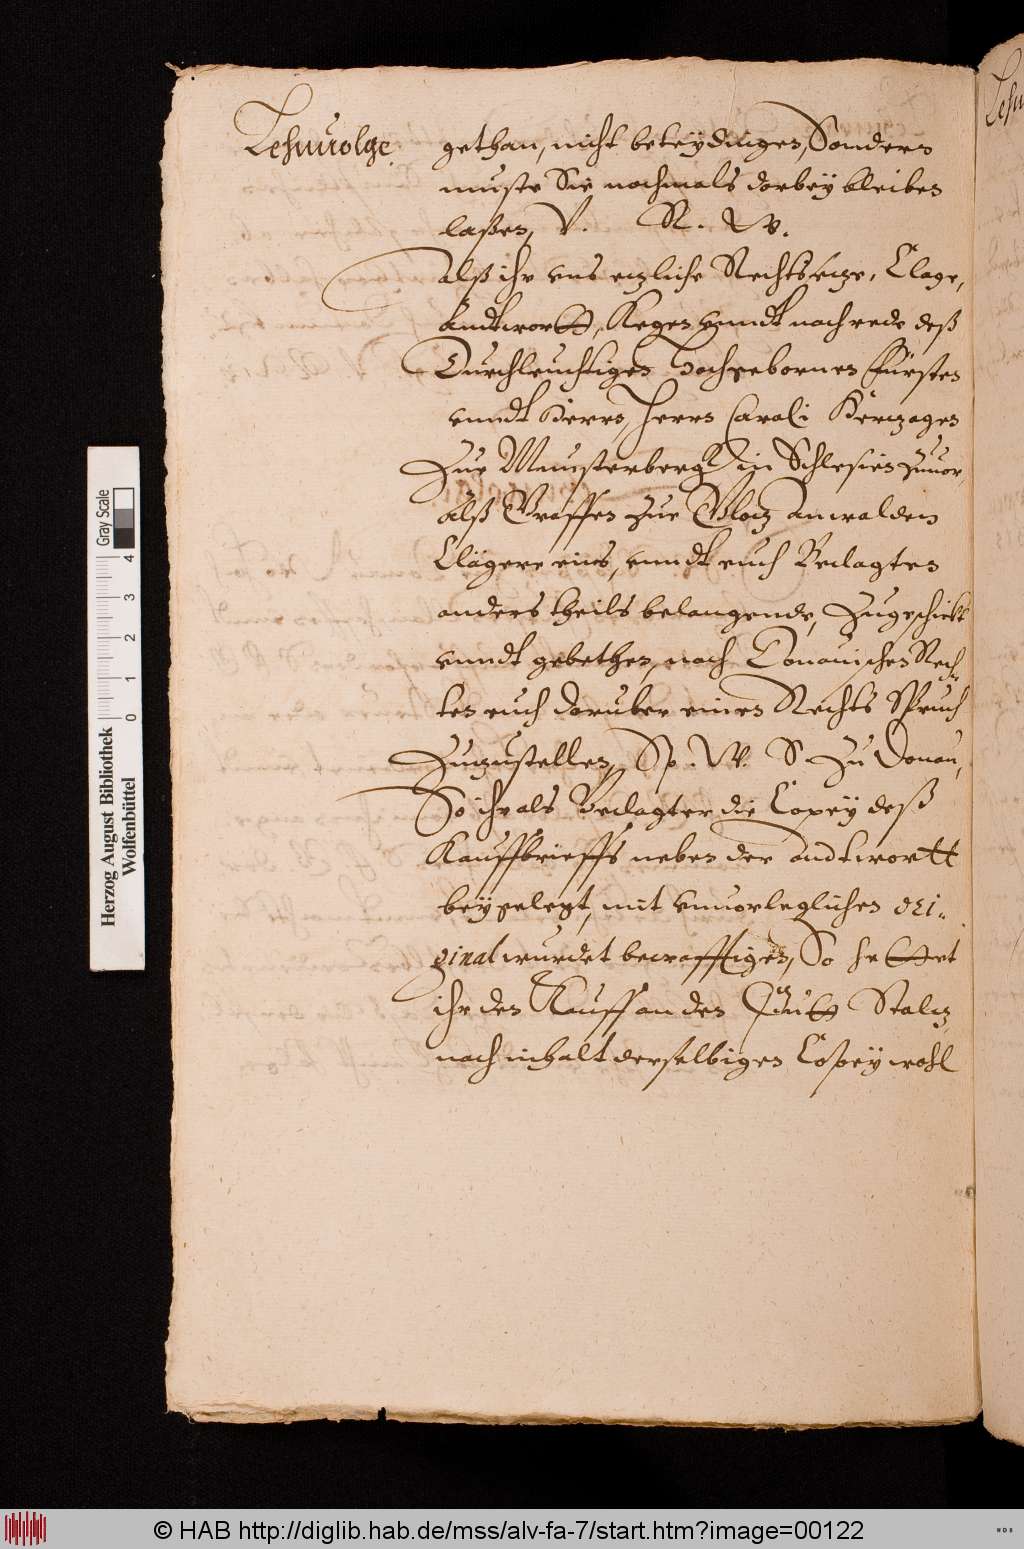 Lehnuolge
gethan, nicht beteydingen, Sondern
muste Sie nochmals darbey bleiben
laßen, V. R. W.
Alß ihr vns etzliche Rechtsetze, Clage,
Andtwortt, Kegen vnndt nachrede deß
Durchleuchtigen Hochgebornen Fürsten
vnndt Herrn, Herrn Caroli Hertzogen
Zue Munsterbergk in Schlesien Zuuor
Alß Graffen Zue Glotz Anwalden
Clägere eins, vnndt euch Beclagten
anders theils belangende, Zugeschickt
vnndt gebethen, nach Donauischen Rech-
ten euch daruber einen Rechts Spruch
Zuzustellen, Sp. W. S. Zu Donau,
So ihr als Beclagter die Copey deß
Kauffbrieffs neben der Andtwortt
beygelegt, mit vnuorleglichen ori-
ginal wurdet becrefftigen, So hettet
ihr den Kauff an den Stalz
nach inhalt derselbigen Copey wohl
Herzog August Bibliothek
Wolfenbüttel
Gray Scale
0 1 2 3 4
© HAB http://diglib.hab.de/mss/alv-fa-7/start.htm?image=00122